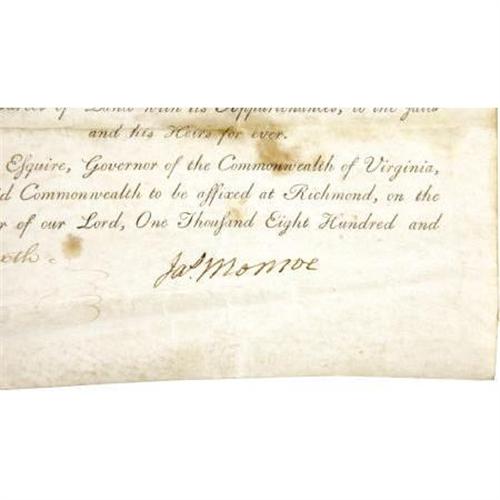 of Land with its Appurtenances, to the said
and his Heirs for ever.
Esquire, Governor of the Commonwealth of Virginia,
Commonwealth to be affixed at Richmond, on the
of our Lord, One Thousand Eight Hundred and
Jas. Monroe